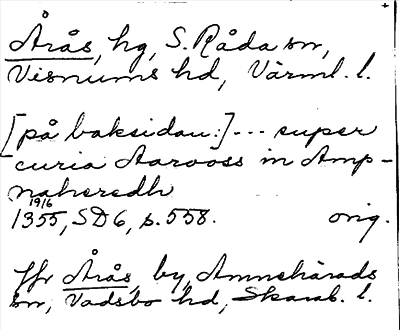 Årås, hg, S. Råda sn,
Visnums hd, Värml. l.
[på baksidan:] --- super
curia Aarooss in Amp-
naheredh
19/6
1355, SD6, s. 558. orig.
Jfr Årås, by, Amnehärads
sn, Vadsbo hd, Skarab. l.